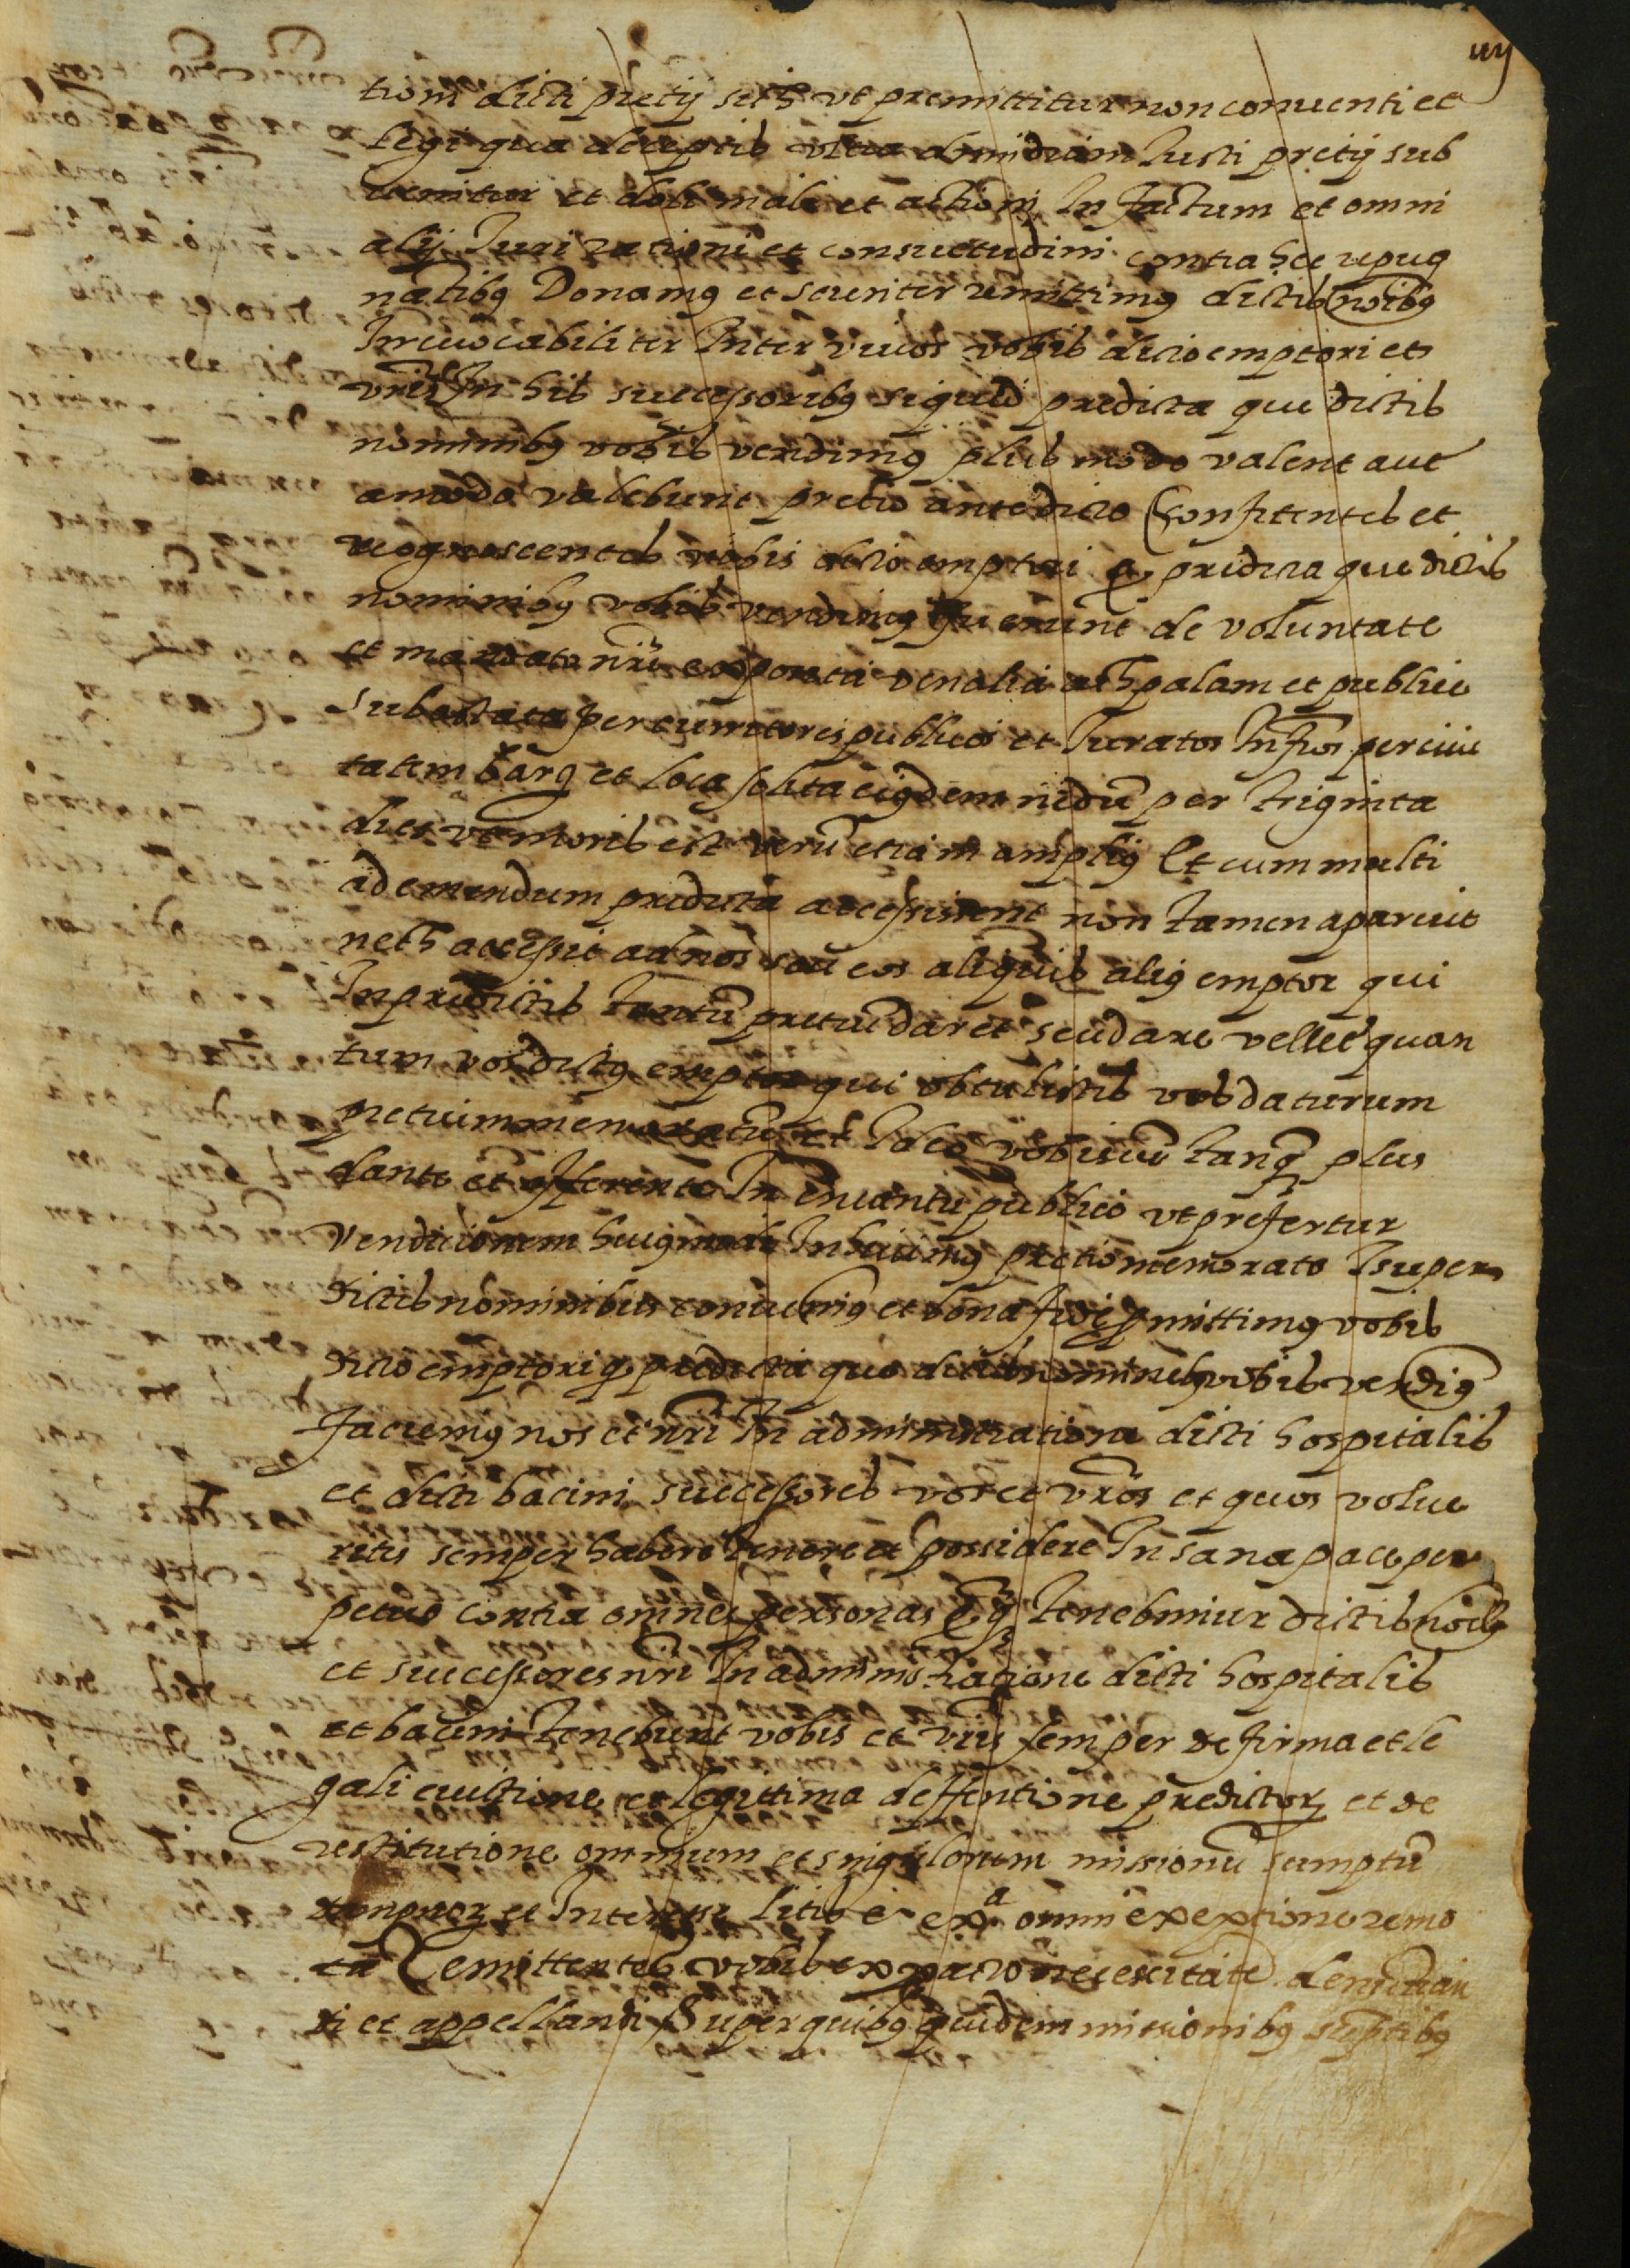 iiij
tioni dicti pretij sich ut premittitur non conventi et
legi qua deceptis ultra dimidiam Iusti pretij sub
venitur et doli mali et actioni In factum et omni
alij Iuri rationi et consuetudini contra hec repug
nātibq Donamq et scienter remittimq dictis noībq
Irrevocabiliter Inter vivos vobis dicto emptori et
vr̄is In his successoribq siquid predicta que dictis
nominibq vobis vendimq plus modo valent aut
amodo valebunt pretio antedicto Confitentes et
recognoscentes vobis dicto emptori q predicta que dictis
nominibq vobis vendimq fuerunt de voluntate
et mandato nr̄is exposita venalia ach palam et publice
subastata per curritores publicos et Iuratos Infros per civi
tatem barq et loca solita eiqdem nedū per triginta
dies ut moris est verū etiam ampliq Et cum multi
ad emendum predicta accessissent non tamen aparuit
nech accessit ad nos seu eos aliquis aliq emptor qui
In predictis tantū pretiū daret seu dare vellet quan
tum vos dictq emptor qui obtulistis vos daturum
pretium memoratū et Ideo vobiscū tanq̄ plus
dante et offerente In encantu publico ut prefertur
venditionem huiqmodi Inhivimq pretio memorato Isuper
dictis nominibus convenimq et bona fide pmittimq vobis
dicto emptori q predicta que dictis nominibq vobis vendīq
faciemq nos et nr̄i In administratione dicti hospitalis
et dicti bacini successores vos et vr̄os et quos volue
ritis semper habere tenere et possidere In sana pace per
petuo contra omnes personas Eq̄ tenebimur dictis noībq
et successores nr̄i In administratione dicti hospitalis
et bacini tenebunt vobis et vr̄is semper de firma et le
gali evictione et legittima deffentione predictoꝝ et de
restitutione omnium et singulorum missionū sumptū
dampnoꝝ et Interesse litis et exa omni exeptione remo
ta Remittentes vobis ex pacto necessitate denūtian
di et appellandi Super quibq quidem missionibq sūptibq